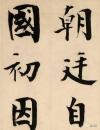 朝廷自
國初因